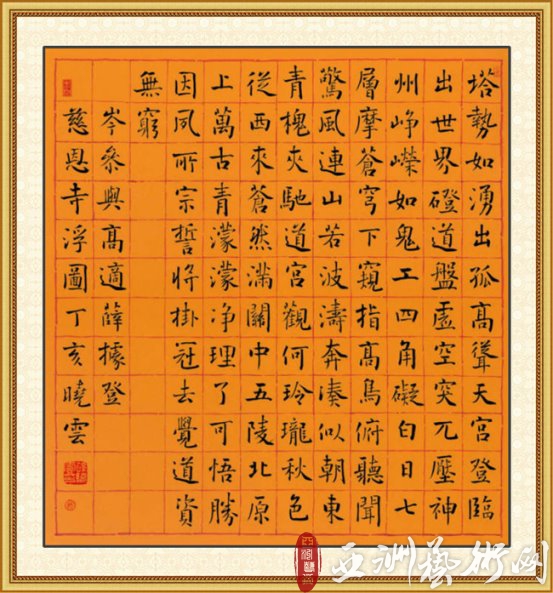 塔勢如湧出孤高聳天宮登臨
出世界磴道盤虛空突兀壓神
州崢嶸如鬼工四角礙白日七
層摩蒼穹下窺指高鳥俯聽聞
驚風連山若波濤奔湊似朝東
青槐夾馳道宮觀何玲瓏秋色
從西來蒼然滿關中五陵北原
上萬古青濛濛净理了可悟勝
因夙所宗誓將掛冠去覺道資
無窮
岑參興高適薛據登
慈恩寺浮圖丁亥曉雲
亚洲藝術网